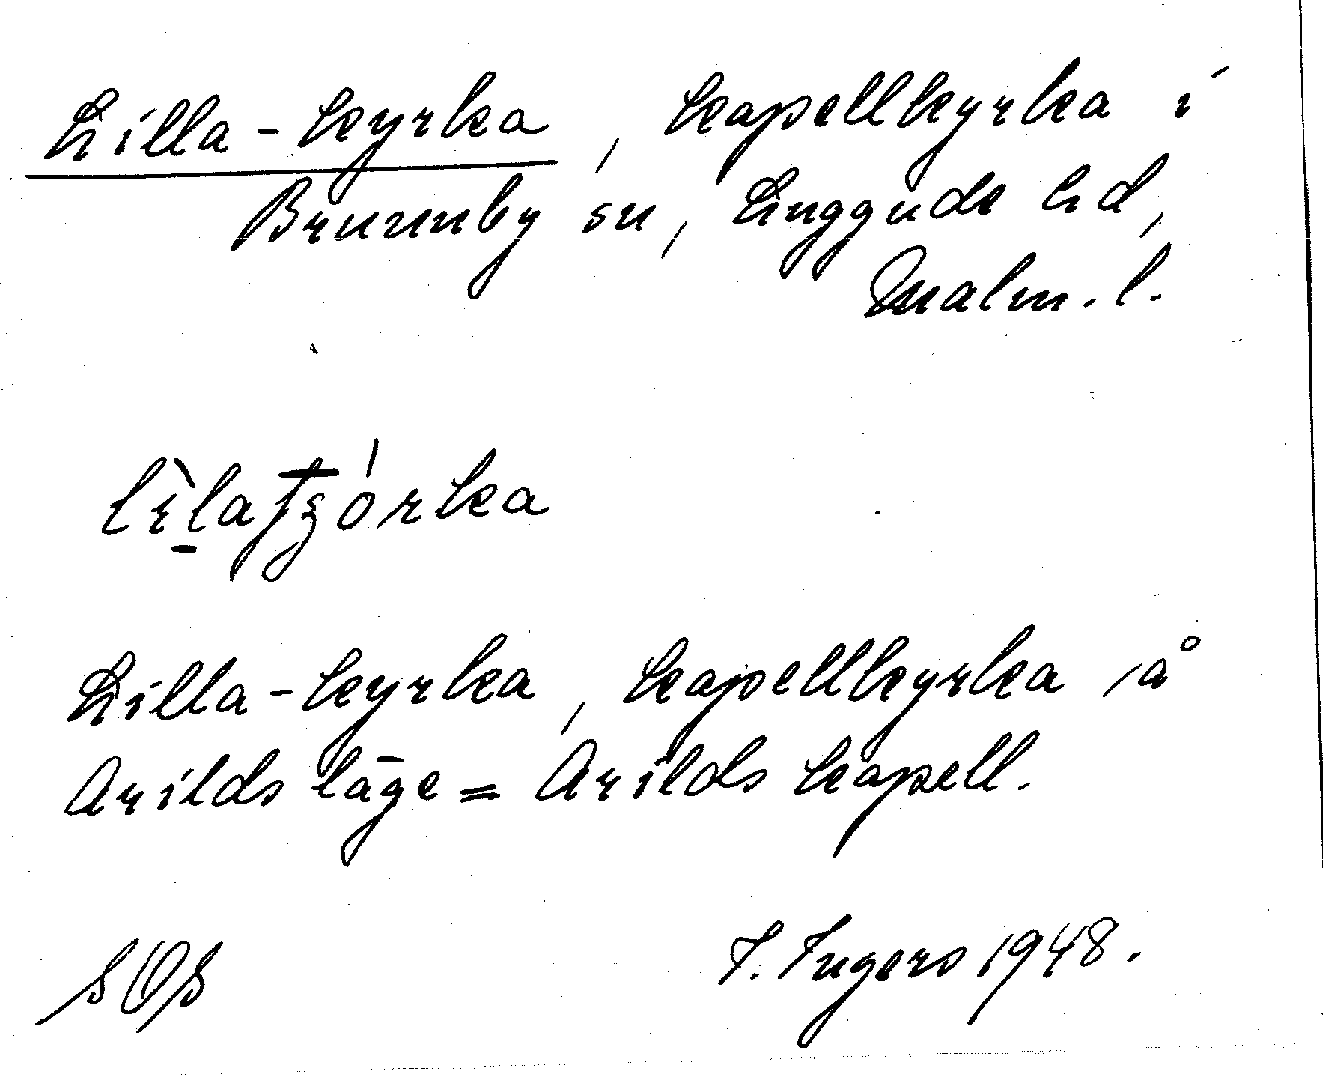 Lilla-kyrka, kapellkyrka i
Brunnby sn, Luggude hd,
Malm. l.
Lilla-kyrka, kapellkyrka å
Arilds läge = Arilds kapell.
SOS
I. Ingers 1948.